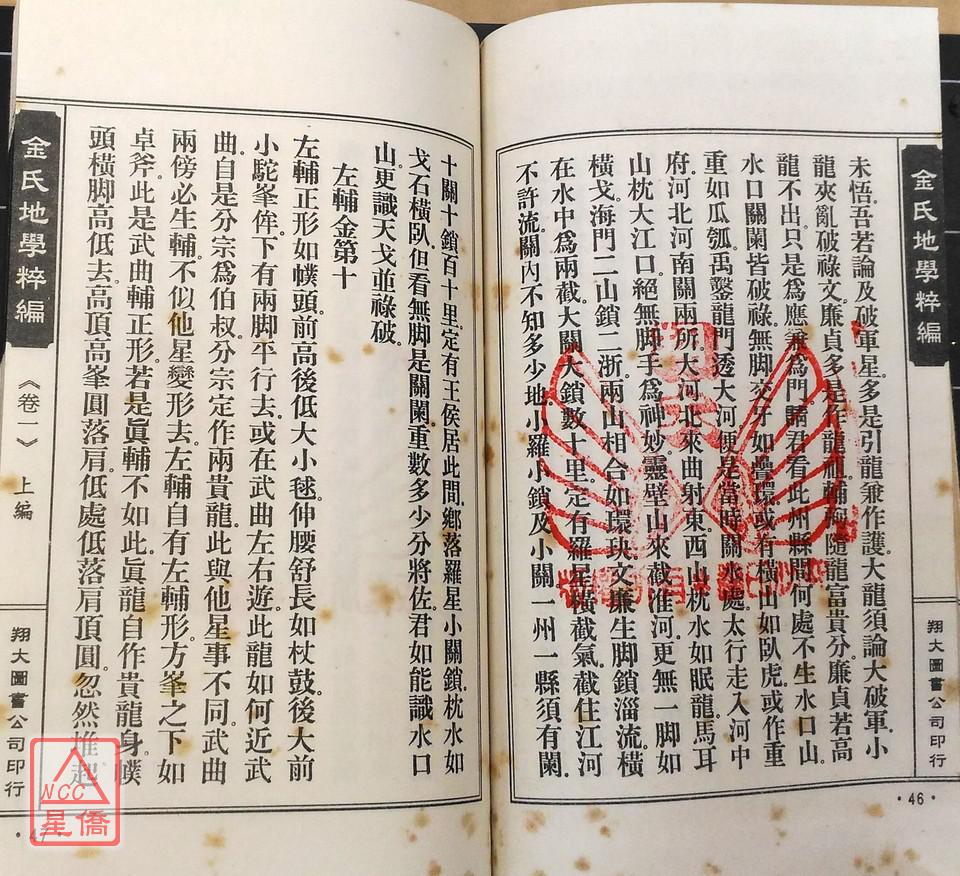 金氏地學粹編
翔大圖書公司印行
・46・
未悟。吾若論及破軍星。多是引龍兼作護。大龍須論大破軍。小
龍夾亂破祿文。廉貞多是作龍祖。輔弼隨龍富貴分。廉貞若高
龍不出。只是為應兼為門。請君看此州縣間。何處不生水口山。
水口關闌皆破祿。無脚交牙如疊環。或有橫山如臥虎。或作重
重如瓜瓠。禹鑿龍門透大河。便是當時關水處。太行走入河中
府。河北河南關兩所。大河北來曲射東。西山枕水如眠龍。馬耳
山枕大江口。絕無脚手為神妙。靈壁山來截淮河。更無一脚如
橫戈。海門二山鎖二浙。兩山相合如環玦。文廉生脚鎖淄流。橫
在水中為兩截。大關大鎖數十里。定有羅星橫截氣。截住江河
不許流。關內不知多少地。小羅小鎖及小關。一州一縣須有闌。
十關十鎖百十里。定有王侯居此間。鄉落羅星小關鎖。枕水如
戈石橫臥。但看無脚是關闌。重數多少分將佐。君如能識水口
山。更識天戈並祿破。
左輔金第十
左輔正形如幞頭。前高後低大小毬。伸腰舒長如杖鼓。後大前
小駝峯侔。下有兩脚平行去。或在武曲左右遊。此龍如何近武
曲。自是分宗為伯叔。分宗定作兩貴龍。此與他星事不同。武曲
兩傍必生輔。不似他星變形去。左輔自有左輔形。方峯之下如
卓斧。此是武曲輔正形。若是眞輔不如此。眞龍自作貴龍身。幞
頭橫脚高低去。高頂高峯圓落肩。低處低落肩頂圓。忽然堆起
金氏地學粹編
《卷一》
上編
翔大圖書公司印行
・47・
NCC
星僑